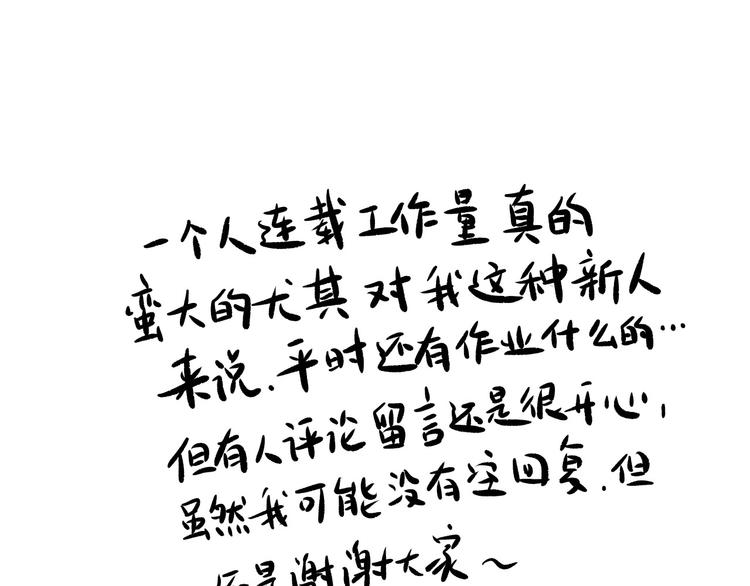 一个人连载工作量真的
蛮大的尤其对我这种新人
来说.平时还有作业什么的…
但有人评论留言还是很开心,
虽然我可能没有空回复.但
还是谢谢大家～